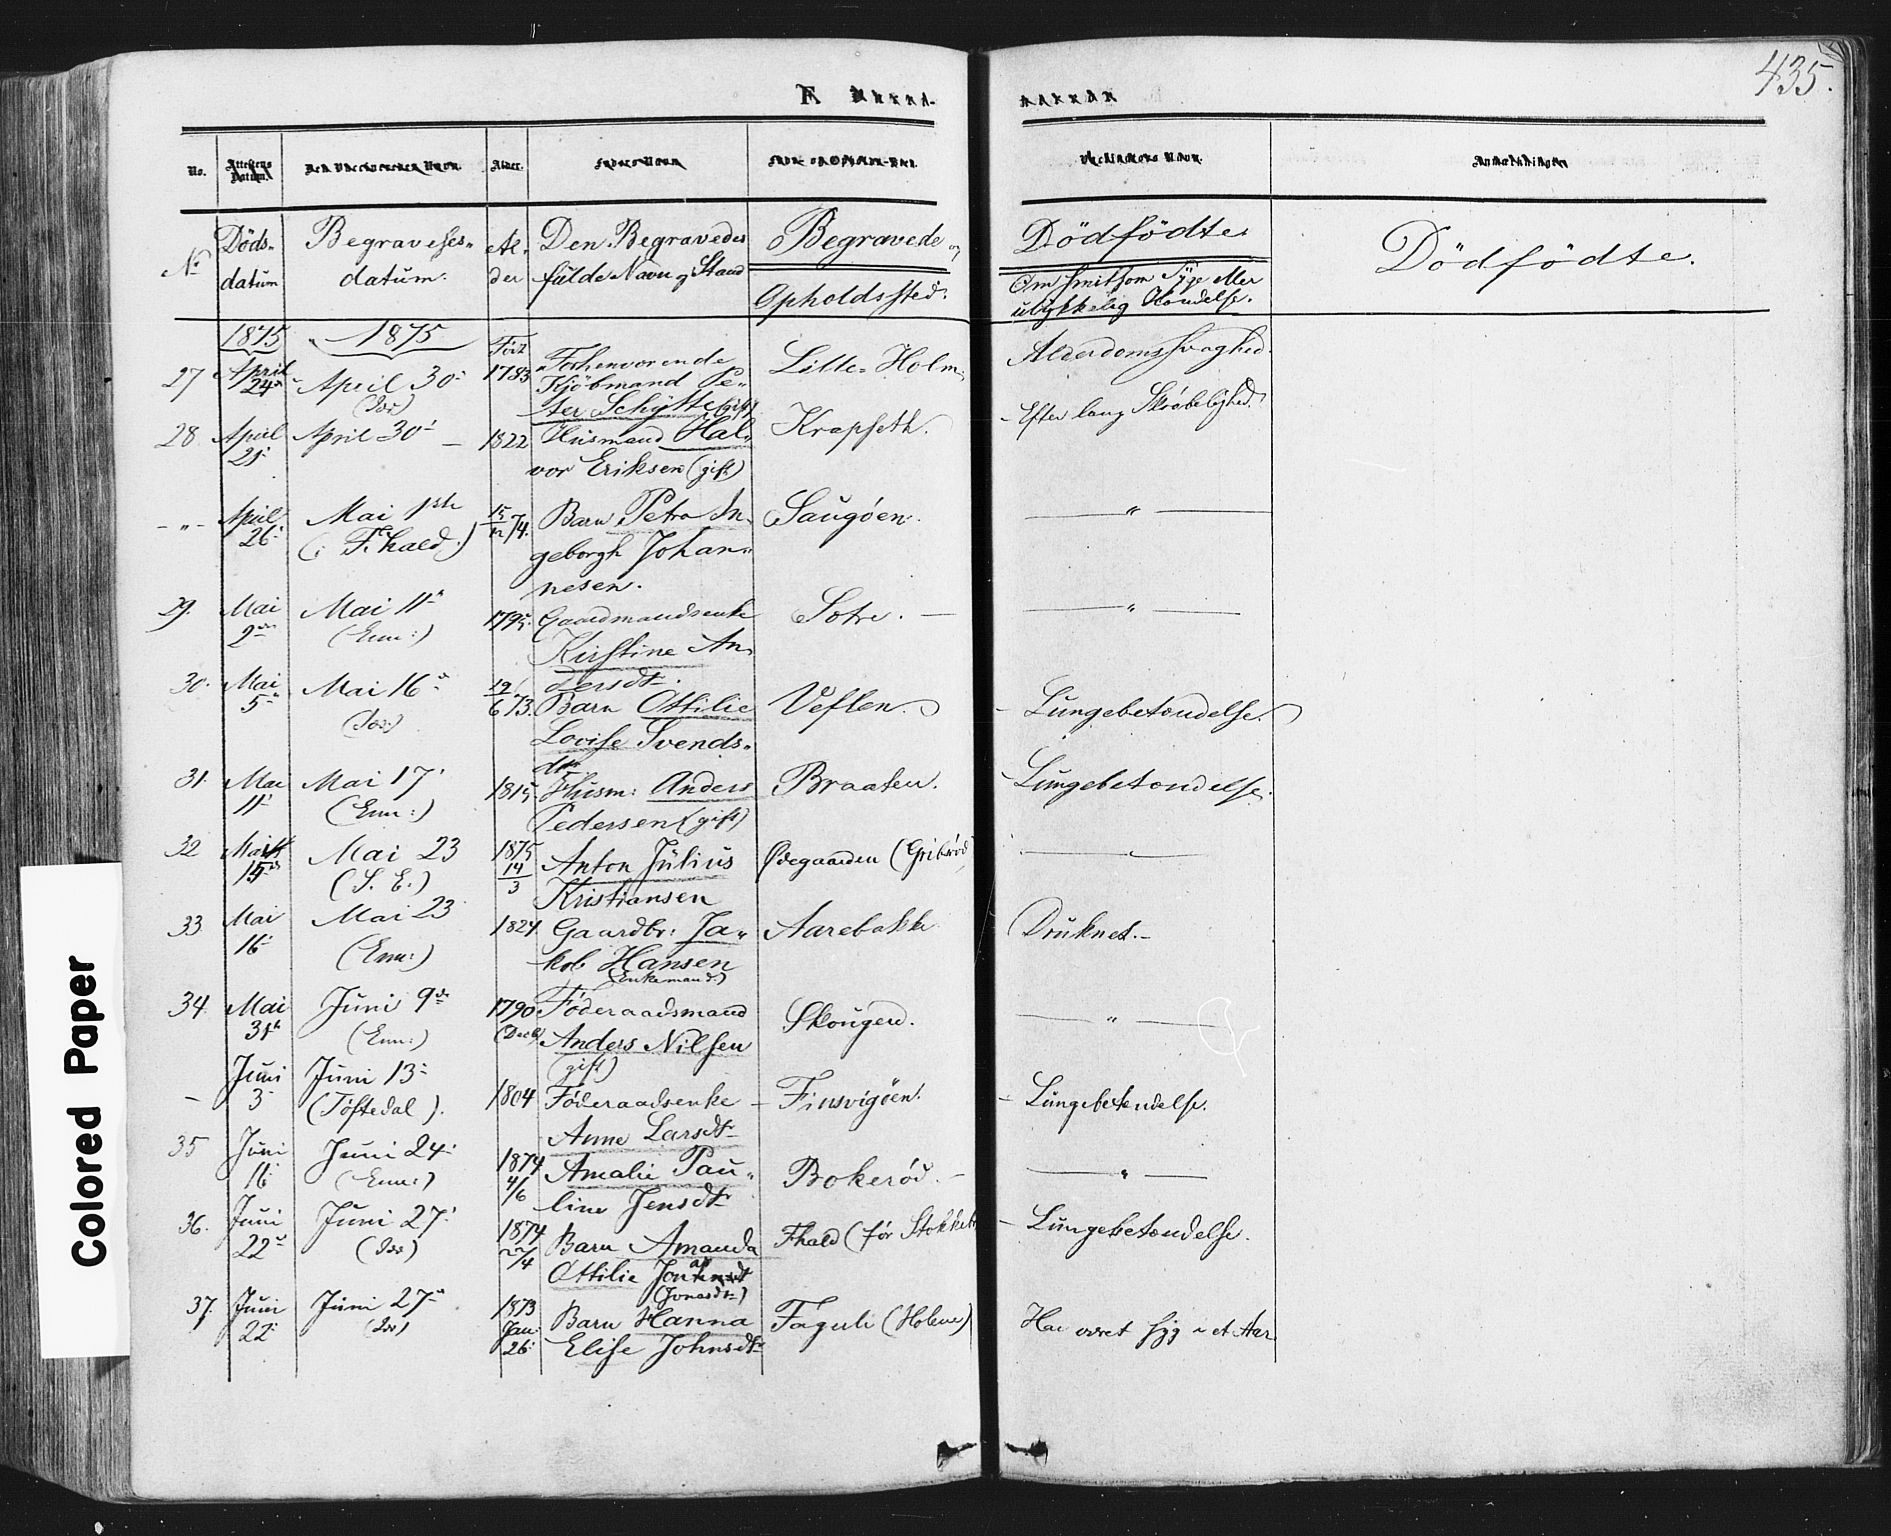 435.
No.
Attestens Datum.
Alder.
No
Döds-
datum
Begravelses-
datum.
Al-
der
Den Begravedes
fulde Navn og Stand
Begravede og
Opholdssted.
Dödfödte
Om smitsom Syge eller
ulykkelig Hændelse.
Dödfödte.
1875
1875
27
April
24de
April 30
(Idd)
Født
1783
Forhenværende
Kjöbmand Pe-
ter Schytte (gift)
Lille-Holm
Alderdomssvaghed.
28
April
25
April 30
1822
Husmand Hal-
vor Eriksen (gift)
Krapfeth.
Efter lang Skrøbelighed.
- " -
April
26
Mai 1ste
(: F.hald :)
15/12 74.
Barn Petra In-
geborgh Johan-
nesen.
Saugøen.
"
29.
Mai
2den
Mai 11
(Enn:)
1795.
Gaardmandsenke
Kirstine An-
dersdtr.
Sotre.
"
30.
Mai
5
Mai 16
(Idd)
19/6 73.
Barn Ottilie
Lovise Svends-
dtr
Veslen
Lungebetændelse.
31.
Mai
11
Mai 17
(Enn:)
1815
Husm: Anders
Pedersen (gift)
Braaten.
Lungebetændelse.
32
Mai
15de
Mai 23
(S. E.)
1875
14/3
Anton Julius
Kristiansen
Ødegaarden (Gribsrød)
33
Mai
16
Mai 23
(Enn:)
1824
Gaardbr: Ja-
kob Hansen
(Enkemand)
Aarebakke
Druknet.
34
Mai
31te
Juni 9de
(Enn:)
1790
(Decb)
Føderaadsmand
Anders Nilsen
(gift)
Skougen.
"
-
Juni
3
Juni 13
(Töftedal).
1804
Føderaadsenke
Anne Larsdtr
Finsvigøen.
Lungebetændelse.
35
Juni
16
Juni 24
(Enn:)
1874
4/6
Amalie Pau-
line Jensdtr
Bokerød.
"
36.
Juni
22
Juni 27
(Idd)
1874
27/4
Barn Amanda
Ottilie
(Jonasdtr)
Fhald (før Stokkebr
Lungebetændelse.
37.
Juni
22
Juni 27
(Idd)
1873
Jan.
26
Barn Hanna
Elise Johnsdtr
Faguli (Holene)
Har været syg i et Aar
Colored Paper